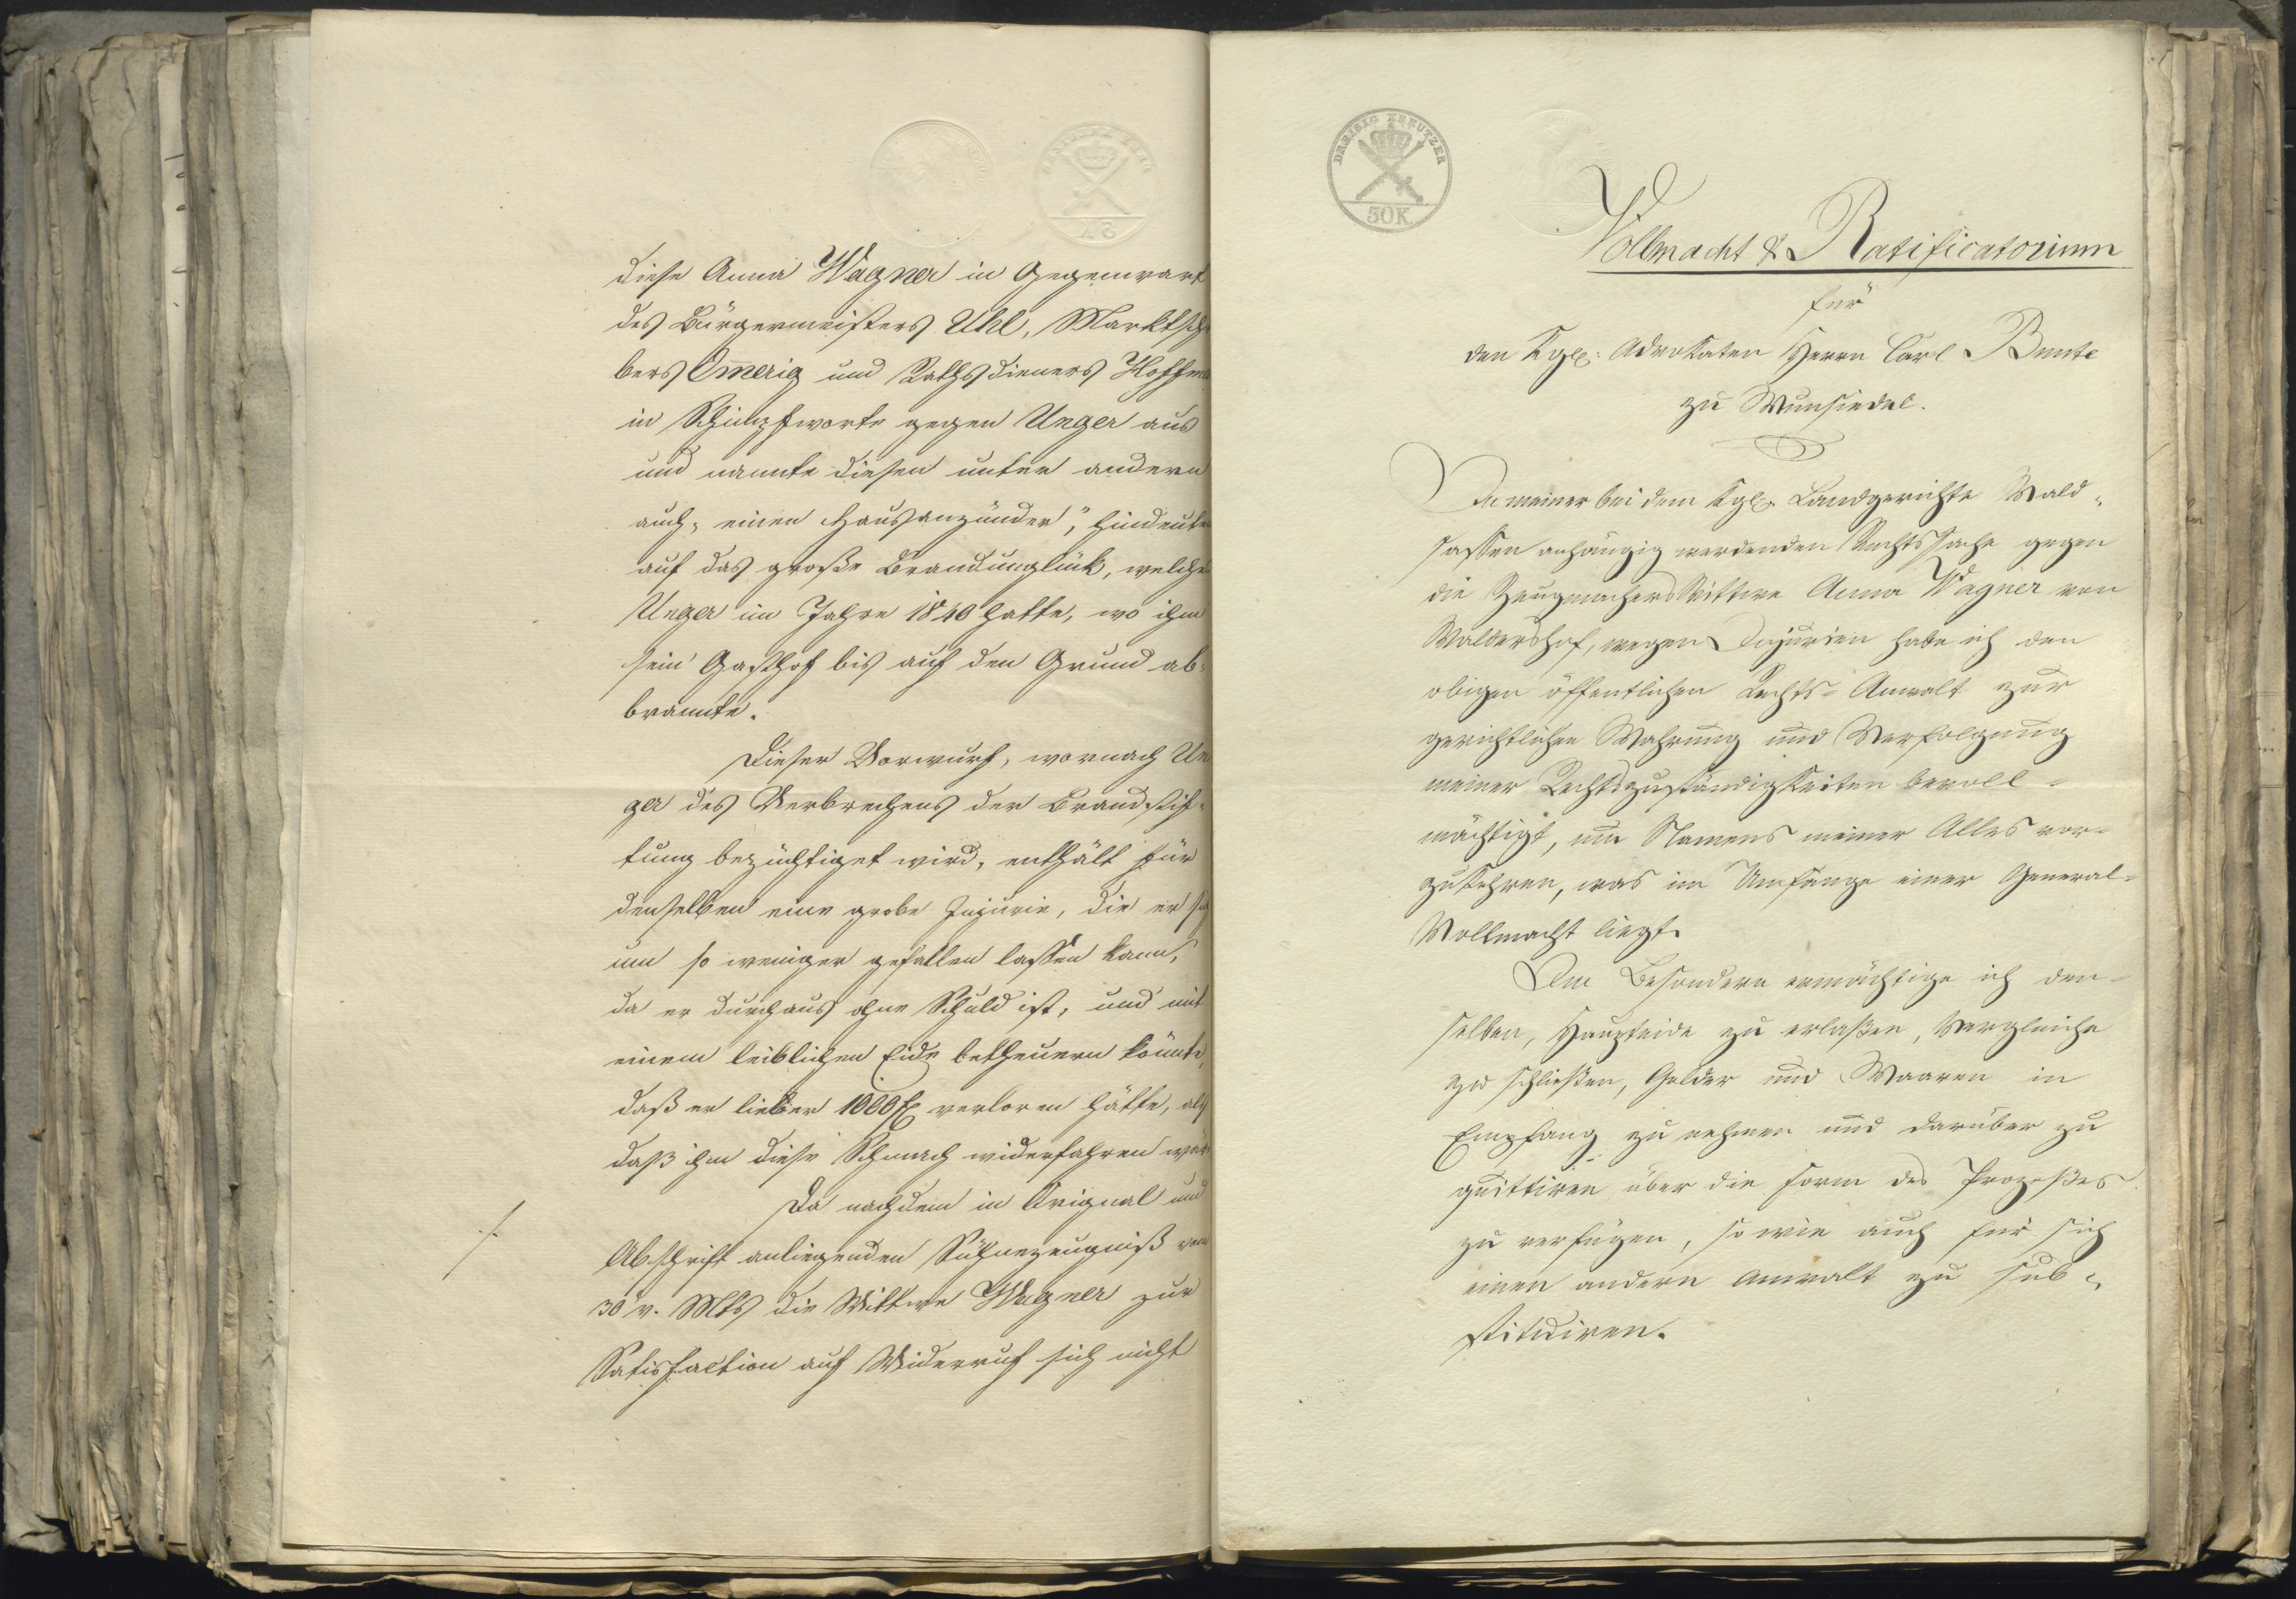 diese Anna Wagner in Gegenwart
des Bürgermeisters Uhl, Marktsch
bers Om̅erig und Rathsdieners Hoffma
in Schimpfworte gegen Unger aus
und nannte diesen unter andern
auch „einen Hausanzünder“, hindeuten
auf das große Brandunglück, welches
Unger im Jahre 1840 hatte, wo ihm
sein Gasthof bis auf den Grund ab-
brannte.
Dieser Vorwurf, wornach Un
ger des Verbrechens der Brandstif-
tung bezüchtiget wird, enthält für
denselben eine grobe Injurie, die er sich
um so weniger gefallen lassen kann,
da er durchaus ohne Schuld ist, und mit
einem leiblichen Eide betheuern könnte,
daß er lieber 1000 f verloren hätte, als
daß ihm diese Schmach widerfahren wär
Da nach dem in Original und
Abschrift anliegenden Sühnezeugniß vom
30 v. Mts die Wittwe Wagner zur
Satisfaction auf Widerruf sich nicht
DREISIG KREUTZER
30K
Vollmacht & Ratificatorium
für
den Kgl: Advokaten Herrn Carl Bunte
zu Wunsiedel.
In meiner bei dem Kgl. Landgerichte Wald-
sassen anhängig werdenden Rechtssache gegen
die Zeugmachers Wittwe Anna Wagner von
Waldershof, wegen Injurien habe ich den
obigen öffentlichen Rechts-Anwalt zur
gerichtlichen Wahrung und Verfolgung
meiner Rechtszuständigkeiten bevoll-
mächtigt, um Namens meiner Alles vor-
zukehren, was im Umfange einer General-
Vollmacht liegt.
Im Besondern ermächtige ich den-
selben, Haupteide zu erlaßen, Vergleiche
zu schließen, Gelder und Waaren in
Empfang zu nehmen und darüber zu
quittiren über die Form des Prozeßes
zu verfügen, so wie auch für sich
einen andern Anwalt zu sub-
stituiren.